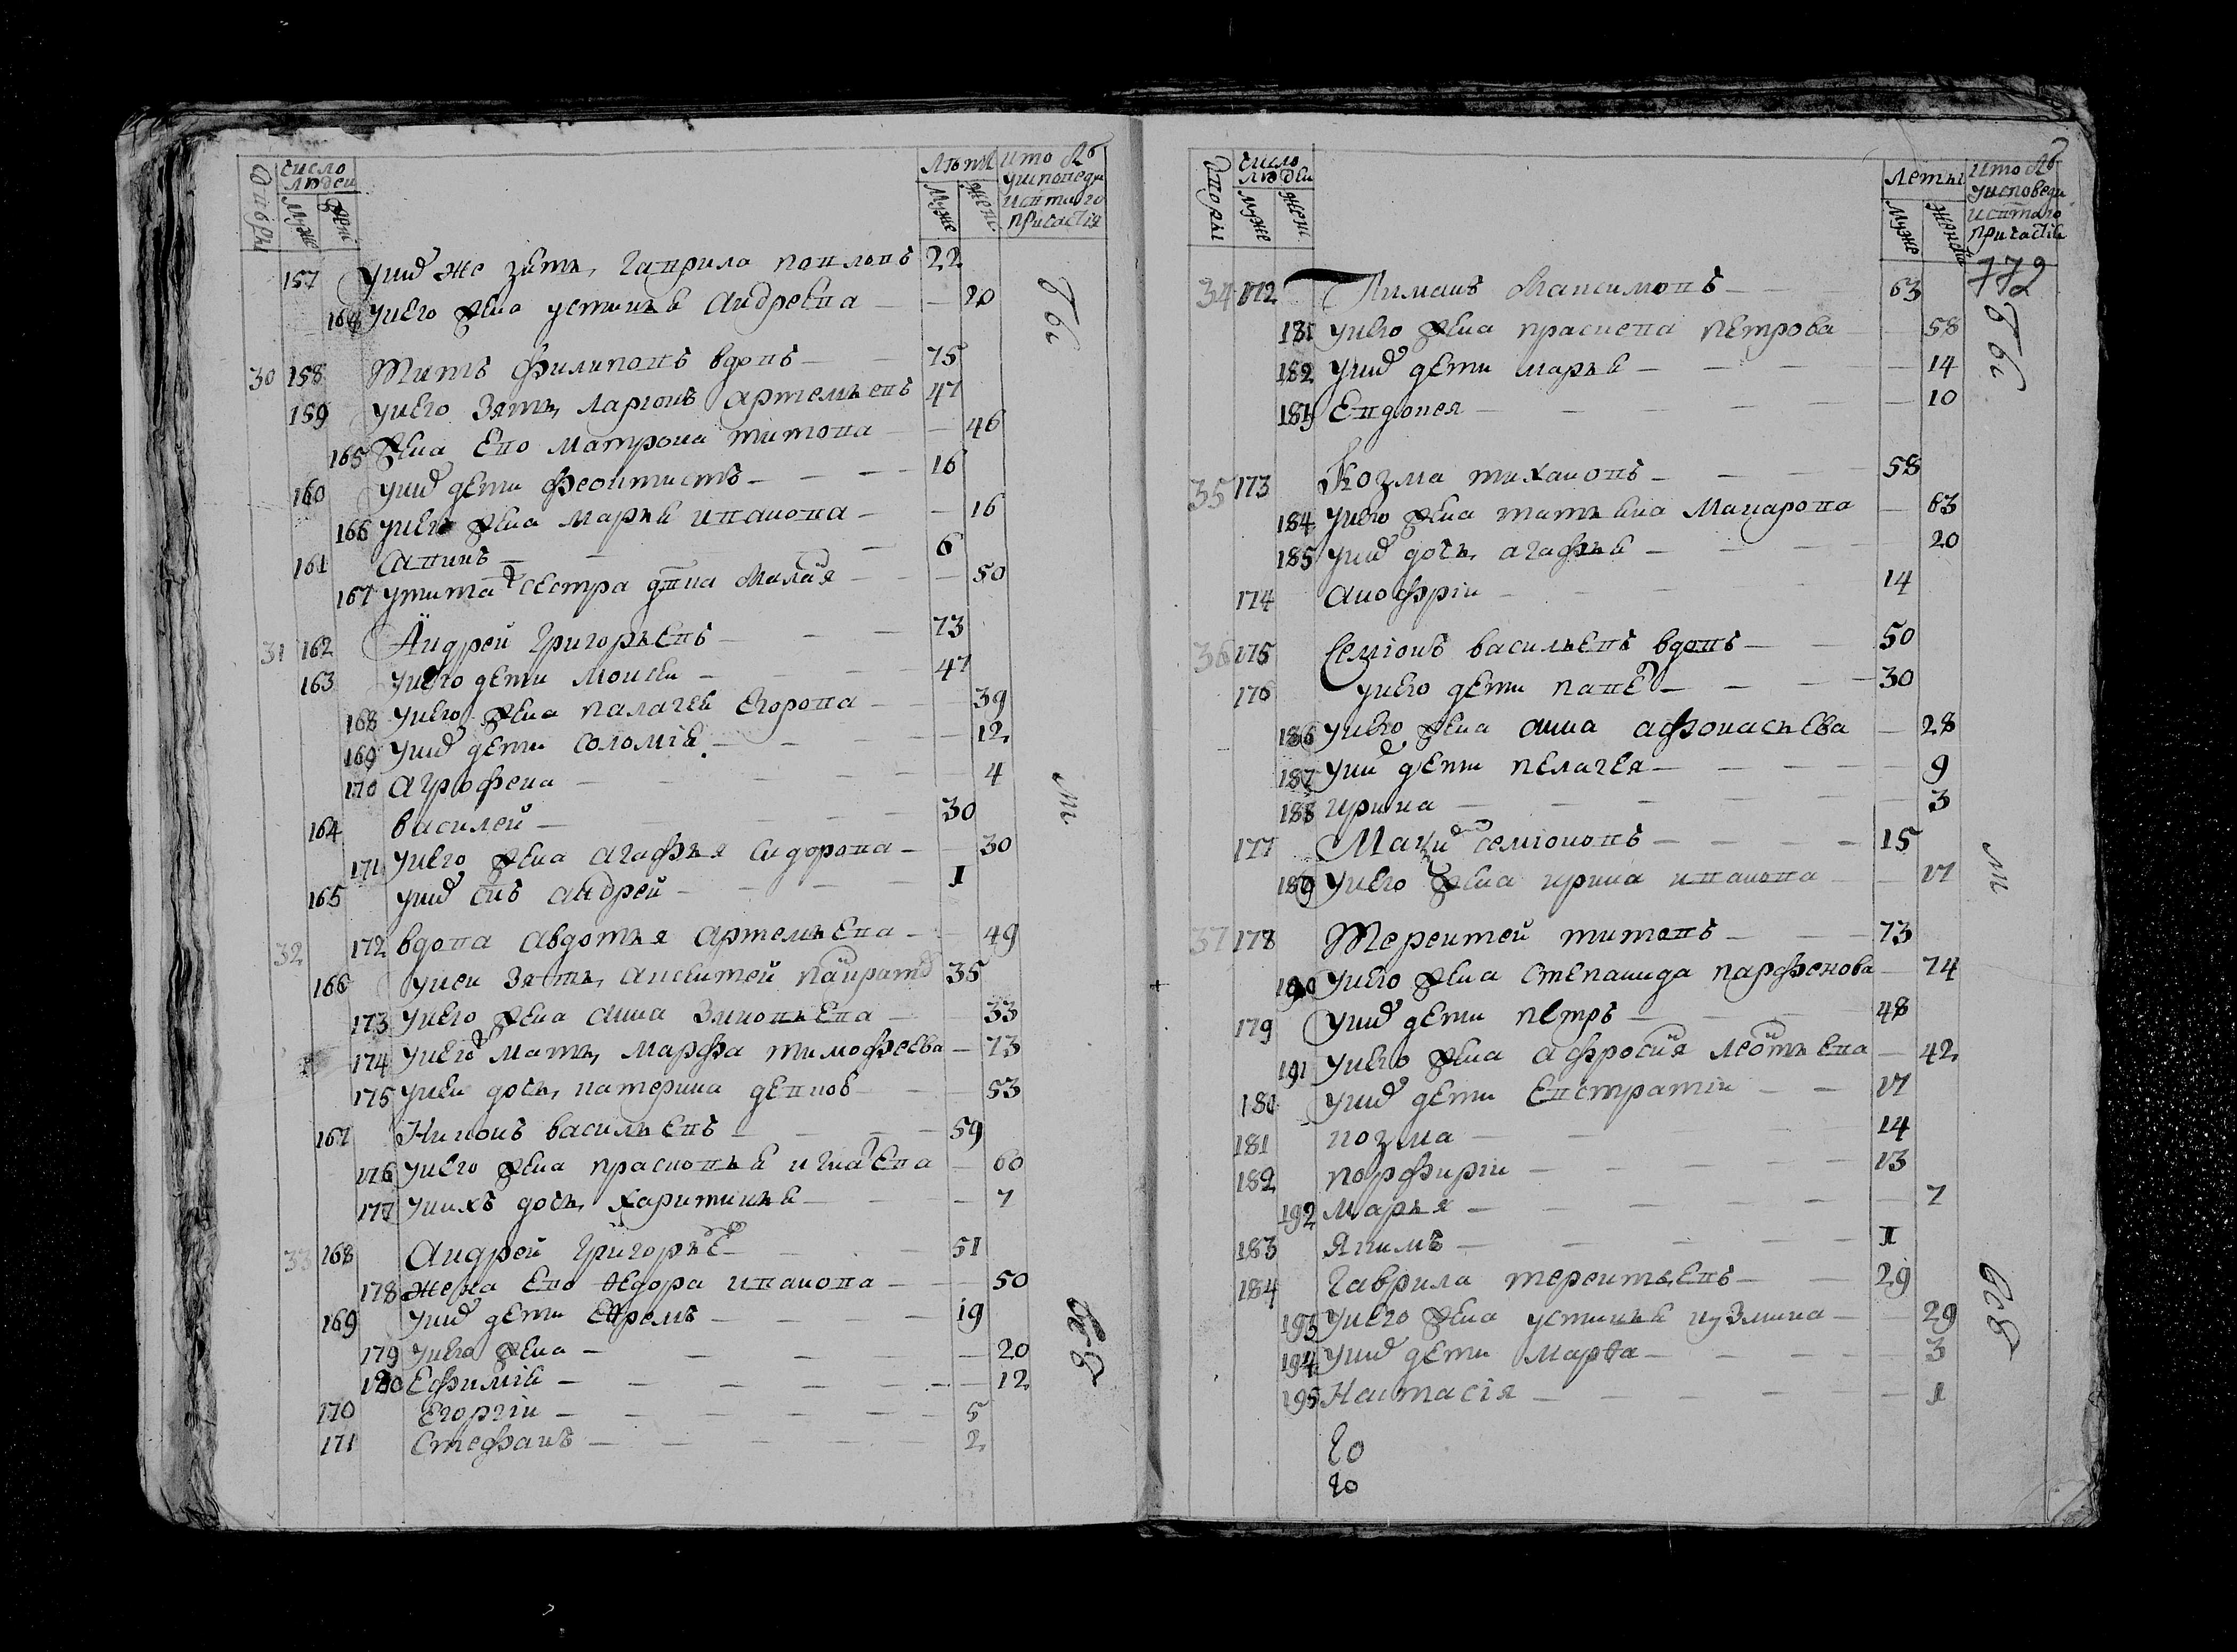 Дворы
число людей
муже
жені
Лѣты
муже
жені.
кто бы
у исповеди
и с̃таго
причастїя
157 у них же зять, гаврила павловъ 22
164 у него жена устинья андреева — 20
были
30 158 Титъ филиповъ вдовъ — 75
159 у него зять, ларионъ артемьевъ 47
165 жена Ево матрона титова — 46
160 у них дети феоктистъ — 16
166 у него жена марья иванова — 16
161 савинъ — 6
167 у тита сестра двка Малая — 50
31 162 Андрей Григорьевъ — 73
163 у него дети моисеи — 47
168 у него жена палагея Егорова — 39
169 у них дети соломия — 12
170 агрофена — 4
164 василей — 30
171 у него жена агафья сидорова — 30
165 у них снъ андрей — 1
32 172 вдова авдотья артемьева — 49
166 у неи зять, аксентей панкрат 35
173 у него жена анна зиновьева — 33
174 у него мать, марфа тимофеева — 73
175 у неи дочь, катерина девков — 53
167 Никонъ васильевъ — 59
176 у него жена прасковья игнаева — 60
177 у нихъ дочь, харитинья — 7
33 168 Андрей Григорье — 51
178 жена Ево ѳедора иванова — 50
169 у них дети Еѳремъ — 19
179 у него жена — 20
180 Ефимия — 12
170 Егоргіи — 5
171 Стефанъ — 2
Дворы
число людеи
муже
жені
Леты
муже
женска
кто бы
у исповеди
и с̃таго
причастія
772
34 172 Пиманъ Максимовъ — 63
181 у него жена прасковя петрова — 58
182 у них дети марья — 14
183 Евдокея — 10
были
35 173 Козма тихановъ — 58
184 у него жена татьяна Макарова — 63
185 у них дочь, агафья — 20
174 анофріи — 14
36 175 Семіонъ васильевъ вдовъ — 50
176 у него дети паве — 30
186 у него жена анна афонасьева — 28
187 у них дети пелагея — 9
188 ирина — 3
177 Макси семіоновъ — 15
189 у него жена ирина иванова — 17
37 178 Терентей титовъ — 73
190 у него жена степанида парфенова — 74
179 у них дети петръ — 48
191 у него жена афросия леотьева — 42
180 у них дети Евстратіи — 17
181 козма — 14
182 порфиріи — 13
192 Марья — 7
183 Якимъ — 1
184 Гаврила терентьевъ — 29
193 у него жена устинья кузмина — 29
194 у них дети марѳа — 3
195 Настасія — 1